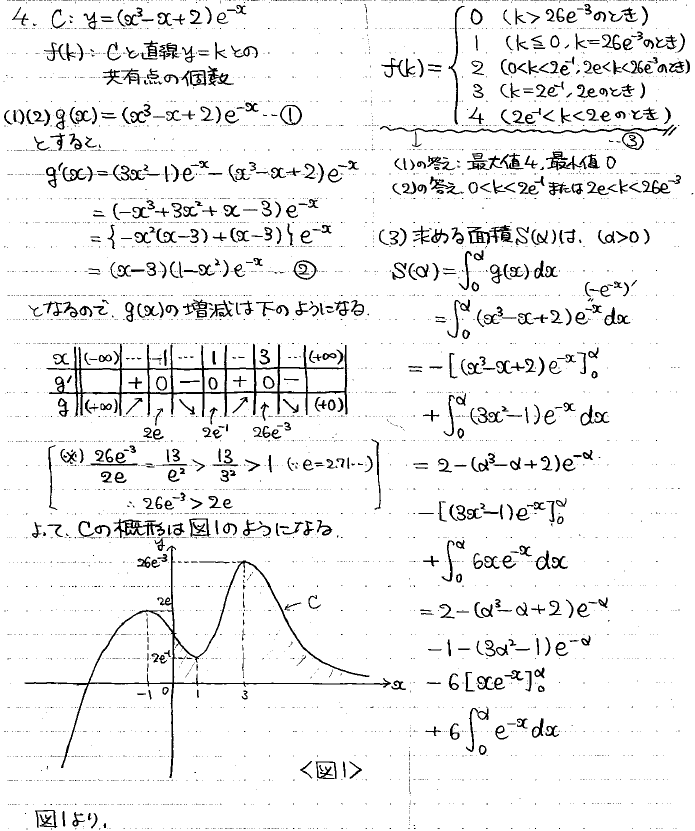 4. C: y=(x³-x+2)e⁻ˣ
f(k): Cと直線y=kとの
共有点の個数
(1)(2) g(x)=(x³-x+2)e⁻ˣ…①
とすると、
g'(x)=(3x²-1)e⁻ˣ-(x³-x+2)e⁻ˣ
=(-x³+3x²+x-3)e⁻ˣ
={-x²(x-3)+(x-3)}e⁻ˣ
=(x-3)(1-x²)e⁻ˣ…②
となるので、g(x)の増減は下のようになる.
x (-∞) … -1 … 1 … 3 … (+∞)
g' + 0 - 0 + 0 -
g (+∞) ↗ ↘ ↗ ↘ (+0)
2e 2e⁻¹ 26e⁻³
(※) 26e⁻³/2e = 13/e² > 13/3² > 1 (∵e=2.71…)
∴ 26e⁻³>2e
よって、Cの概形は図1のようになる.
y
26e⁻³
2e
2e⁻¹
C
-1 0 1 3 x
<図1>
図1より,
f(k)=
0 (k>26e⁻³のとき)
1 (k≦0, k=26e⁻³のとき)
2 (0<k<2e⁻¹, 2e<k<26e⁻³のとき)
3 (k=2e⁻¹, 2eのとき)
4 (2e⁻¹<k<2eのとき)
…③
(1)の答え: 最大値4, 最小値0
(2)の答え. 0<k<2e⁻¹または2e<k<26e⁻³
(3) 求める面積S(α)は, (α>0)
S(α)=∫₀^α g(x)dx
(-e⁻ˣ)'
=∫₀^α (x³-x+2)e⁻ˣdx
=-[(x³-x+2)e⁻ˣ]₀^α
+∫₀^α (3x²-1)e⁻ˣdx
=2-(α³-α+2)e^-α
-[(3x²-1)e⁻ˣ]₀^α
+∫₀^α 6xe⁻ˣdx
=2-(α³-α+2)e^-α
-1-(3α²-1)e^-α
-6[xe⁻ˣ]₀^α
+6∫₀^α e⁻ˣdx